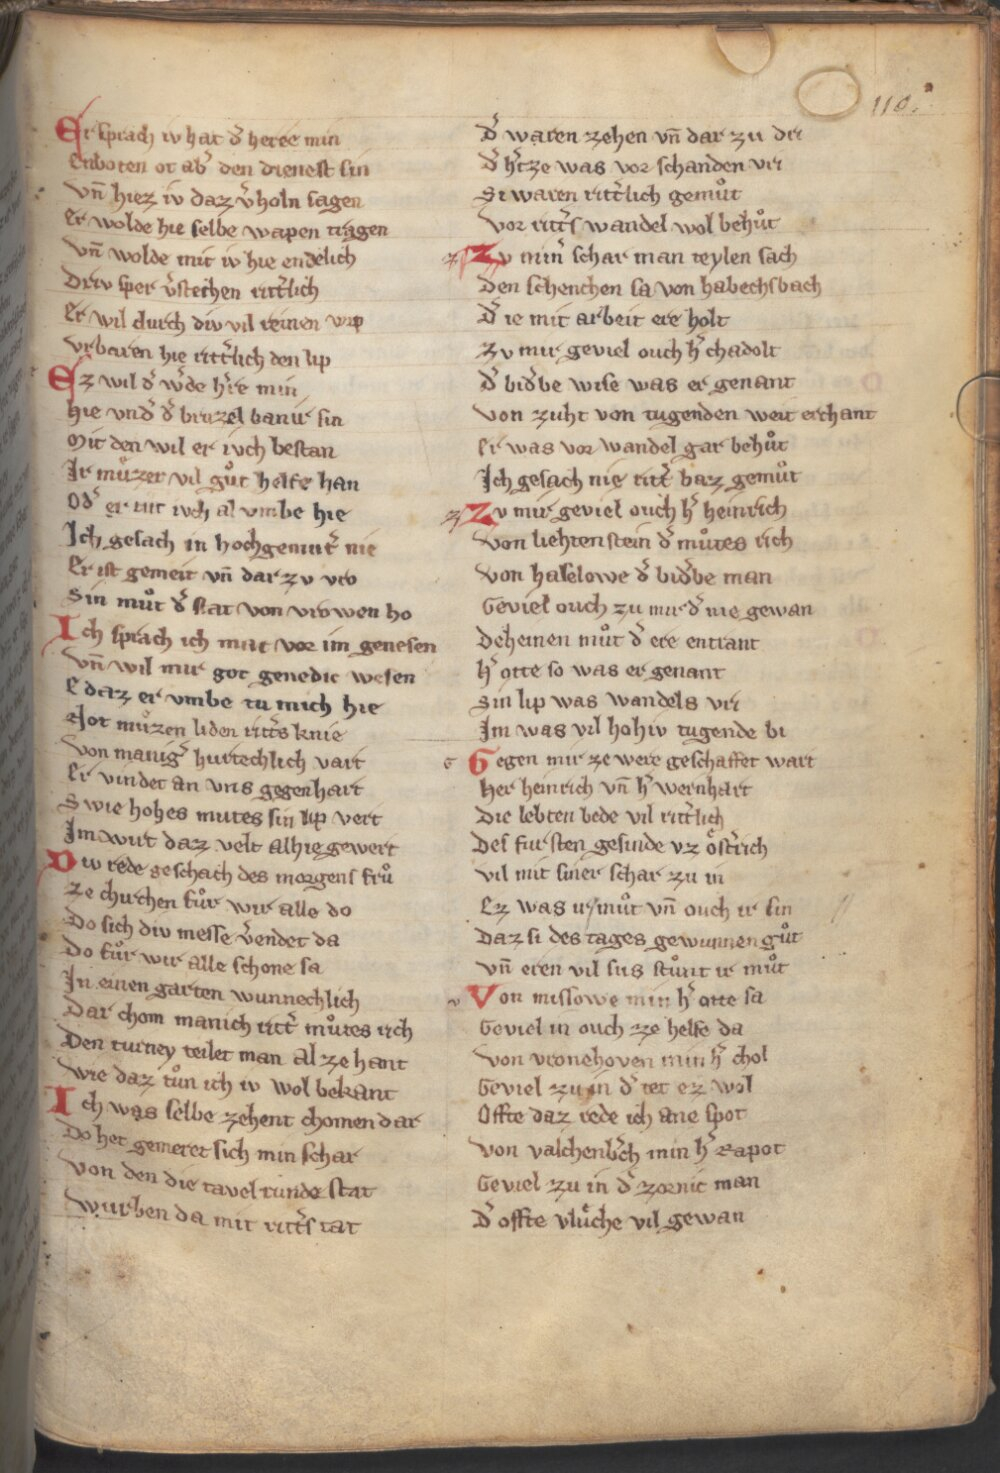 110.
Er sprach iv hat d̾ herre min
Enboten ot ab̾ den dienest sin
Vn̄ hiez iv daz v̾holn sagen
Er wolde hie selbe wapen tragen
Vn̄ wolde mit iv hie endelich
Driv sper v̾stechen ritt̾lich
Er wil durch div vil reinen wip
Vrbaren hie ritt̾lich den lip
Ez wil d̾ w̾de h̾re min
Hie vnd̾ d̾ bruzel banir sin
Mit den wil er ivch bestan
Ir muͦzer vil guͦt helfe han
Od̾ er rit ivch al vmbe hie
Ich gesach in hochgemut̾ nie
Er ist gemeit vn̄ dar zv vro
Sin muͦt d̾ stat von vrowen ho
Ich sprach ich mac vor im genesen
Vn̄ wil mir got genedic wesen
E daz er vmbe tu mich hie
Iot muͦzen liden ritt̾s knie
Von manig̾ hurtechlich vart
Er vindet an vns gegenhart
Swie hohes mutes sin lip vert
Im wirt daz velt alhie gewert
Div rede geschach des morgens fruͦ
Ze chirchen fuͦr wir alle do
Do sich div messe v̾endet da
Do fuͦr wir alle schone sa
In einen garten wunnechlich
Dar chom manich ritt̾ muͦtes rich
Den turney teilet man al ze hant
Wie daz tuͦn ich iv wol bekant
Ich was selbe zehent chomen dar
Do het gemeret sich min schar
Von den die tavel runde stat
Wurben da mit ritt̾s tat
D̾ waren zehen vn̄ dar zu dri
D̾ h̾tze was vor schanden vri
Si waren ritt̾lich gemuͦt
Vor ritt̾s wandel wol behuͦt
Zv min̾ schar man teylen sach
Den schenchen sa von habechsbach
D̾ ie mit arbeit ere holt
Zv mir geviel ouch h̾ chadolt
D̾ bid̾be wise was er genant
Von zuht von tugenden weit erchant
Er was vor wandel gar behuͦt
Ich gesach nie ritt̾ baz gemuͦt
Zv mir geviel ouch h̾ heinrich
Von liehtenstein d̾ muͦtes rich
Von haselowe d̾ bid̾be man
Geviel ouch zu mir d̾ nie gewan
Deheinen muͦt d̾ ere entrant
H̾ otte so was er genant
Sin lip was wandels vri
Im was vil hohiv tugende bi
Gegen mir ze were geschaffet wart
Her heinrich vn̄ h̾ wernhart
Die lebten bede vil ritt̾lich
Des fursten gesinde vz oͤst̾rich
Vil mit siner schar zu in
Ez was ir muͦt vn̄ ouch ir sin
Daz si des tages gewunnen guͦt
Vn̄ eren vil sus stuͦnt ir muͦt
Von missowe min h̾ otte sa
Geviel in ouch ze helfe da
Von vronehoven min h̾ chol
Geviel zu in d̾ tet ez wol
Offte daz rede ich ane spot
Von valchenb̾ch min h̾ Rapot
Geviel zu in d̾ zornic man
D̾ offte vluͤche vil gewan